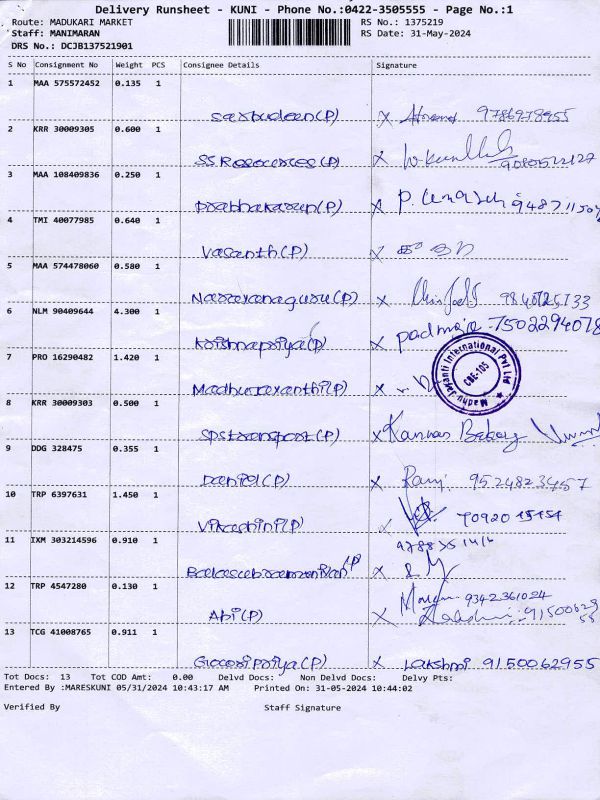 Delivery Runsheet - KUNI - Phone No.:0422-3505555 - Page No.:1
Route: MADUKARI MARKET RS No.: 1375219
Staff: MANIMARAN RS Date: 31-May-2024
DRS No.: DCJB137521901
S No Consignment No Weight PCS Consignee Details Signature
1 MAA 575572452 0.135 1
2 KRR 30009305 0.600 1
SS Resources(P)
3 MAA 108409836 0.250 1
Prabhakaran(P)
4 TMI 40077985 0.640 1
Vasanth(P)
5 MAA 574478060 0.580 1
Narayanaguru(P) 9840725733
6 NLM 90409644 4.300 1
Krishnapriya(P) padmaja 7502294078
7 PRO 16290482 1.420 1
Madhurexanthi(P) Madhu Jayanti International Pvt Ltd CBE-105
8 KRR 30009303 0.500 1
Spstransport(P) x Kannan Bakery
9 DDG 328475 0.355 1
Daniel(P) x Ranj 9524823457
10 TRP 6397631 1.450 1
Vikashini(P)
11 IXM 303214596 0.910 1
Balasubramanian(P)
12 TRP 4547280 0.130 1
9342361024
Abi(P) x
13 TCG 41008765 0.911 1
Gowripriya(P) x Lakshmi 9150062955
Tot Docs: 13 Tot COD Amt: 0.00 Delvd Docs: Non Delvd Docs: Delvy Pts:
Entered By :MARESKUNI 05/31/2024 10:43:17 AM Printed On: 31-05-2024 10:44:02
Verified By Staff Signature